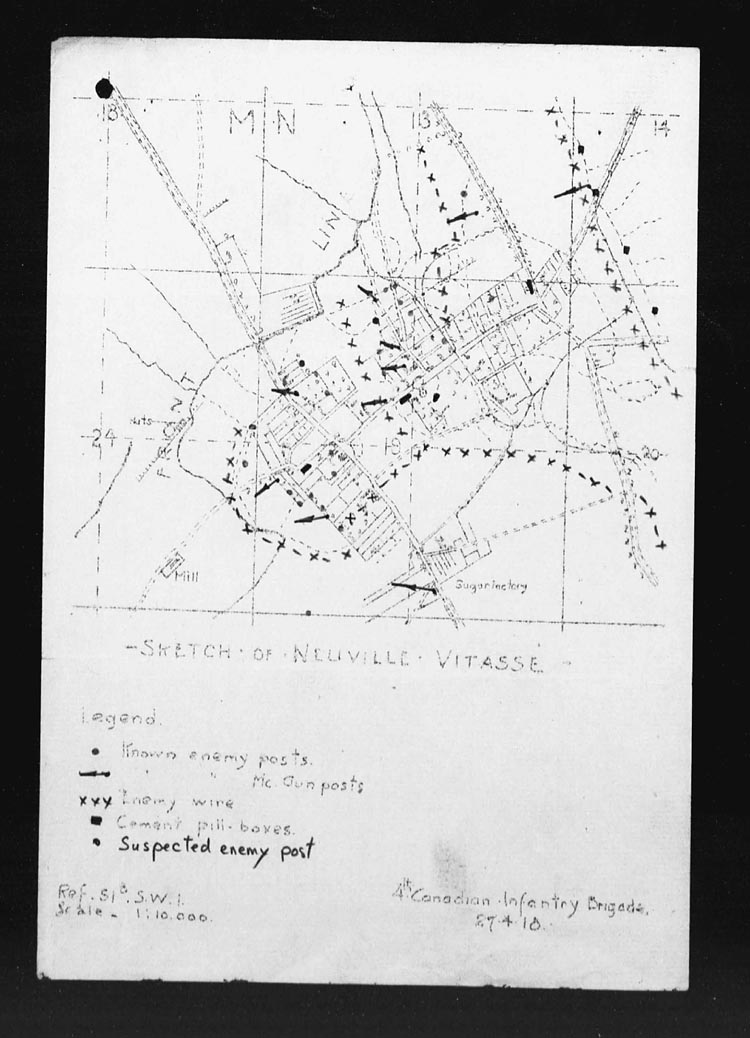 18 M N 13 14
LINE
FRONT
huts
24 19 20
Mill
Sugar factory
- SKETCH · OF · NEUVILLE · VITASSE -
Legend.
Known enemy posts.
" " Mc. Gun posts
xxx Enemy wire
Cement pill-boxes.
Suspected enemy post
Ref. 51B. S.W.1.
Scale - 1:10.000.
4th Canadian Infantry Brigade.
27·4·18.